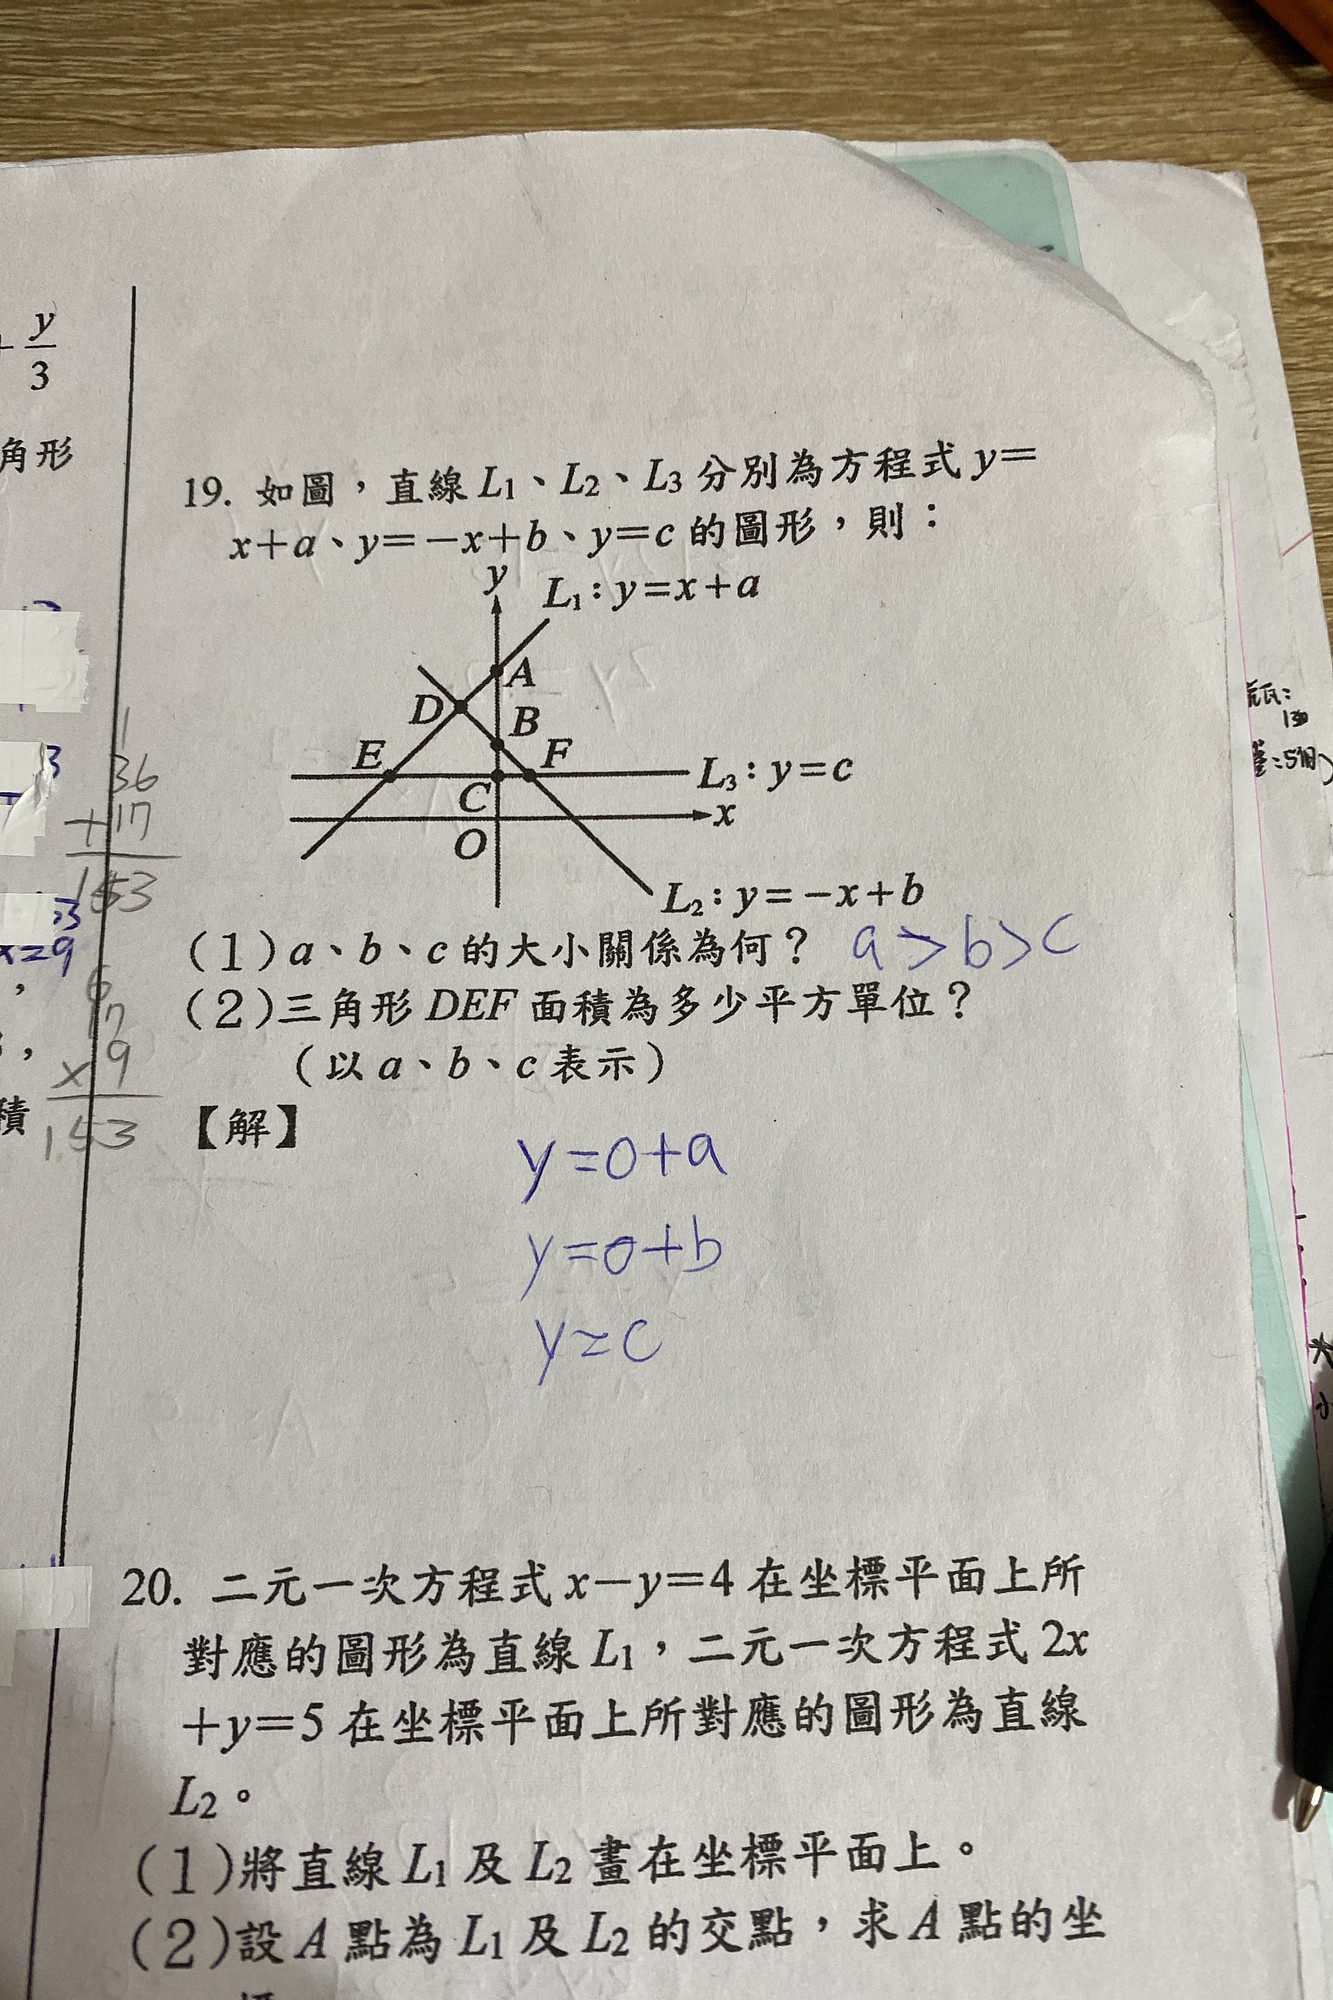 y
3
角形
1
36
+17
153
x=9
17
×9
153
積
19. 如圖，直線 L1、L2、L3 分別為方程式 y=
x+a、y=-x+b、y=c 的圖形，則：
y
L1：y=x+a
A
D
B
E
F
L3：y=c
C
x
O
L2：y=-x+b
(1) a、b、c 的大小關係為何？ a>b>c
(2) 三角形 DEF 面積為多少平方單位？
（以 a、b、c 表示）
【解】
y=0+a
y=0+b
y=c
20. 二元一次方程式 x-y=4 在坐標平面上所
對應的圖形為直線 L1，二元一次方程式 2x
+y=5 在坐標平面上所對應的圖形為直線
L2。
(1) 將直線 L1 及 L2 畫在坐標平面上。
(2) 設 A 點為 L1 及 L2 的交點，求 A 點的坐